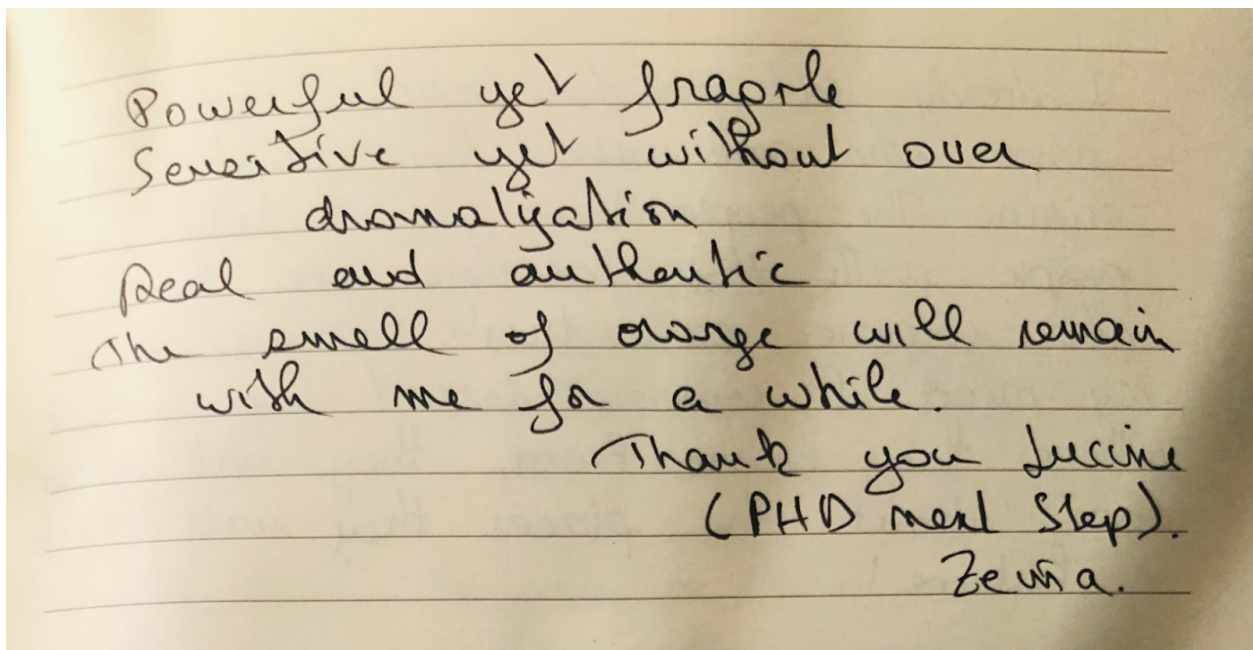 Powerful yet fragile
Sensitive yet without over
dramatization
Real and authentic
The smell of orange will remain
with me for a while.
Thank you Lucine
(PHD next step).